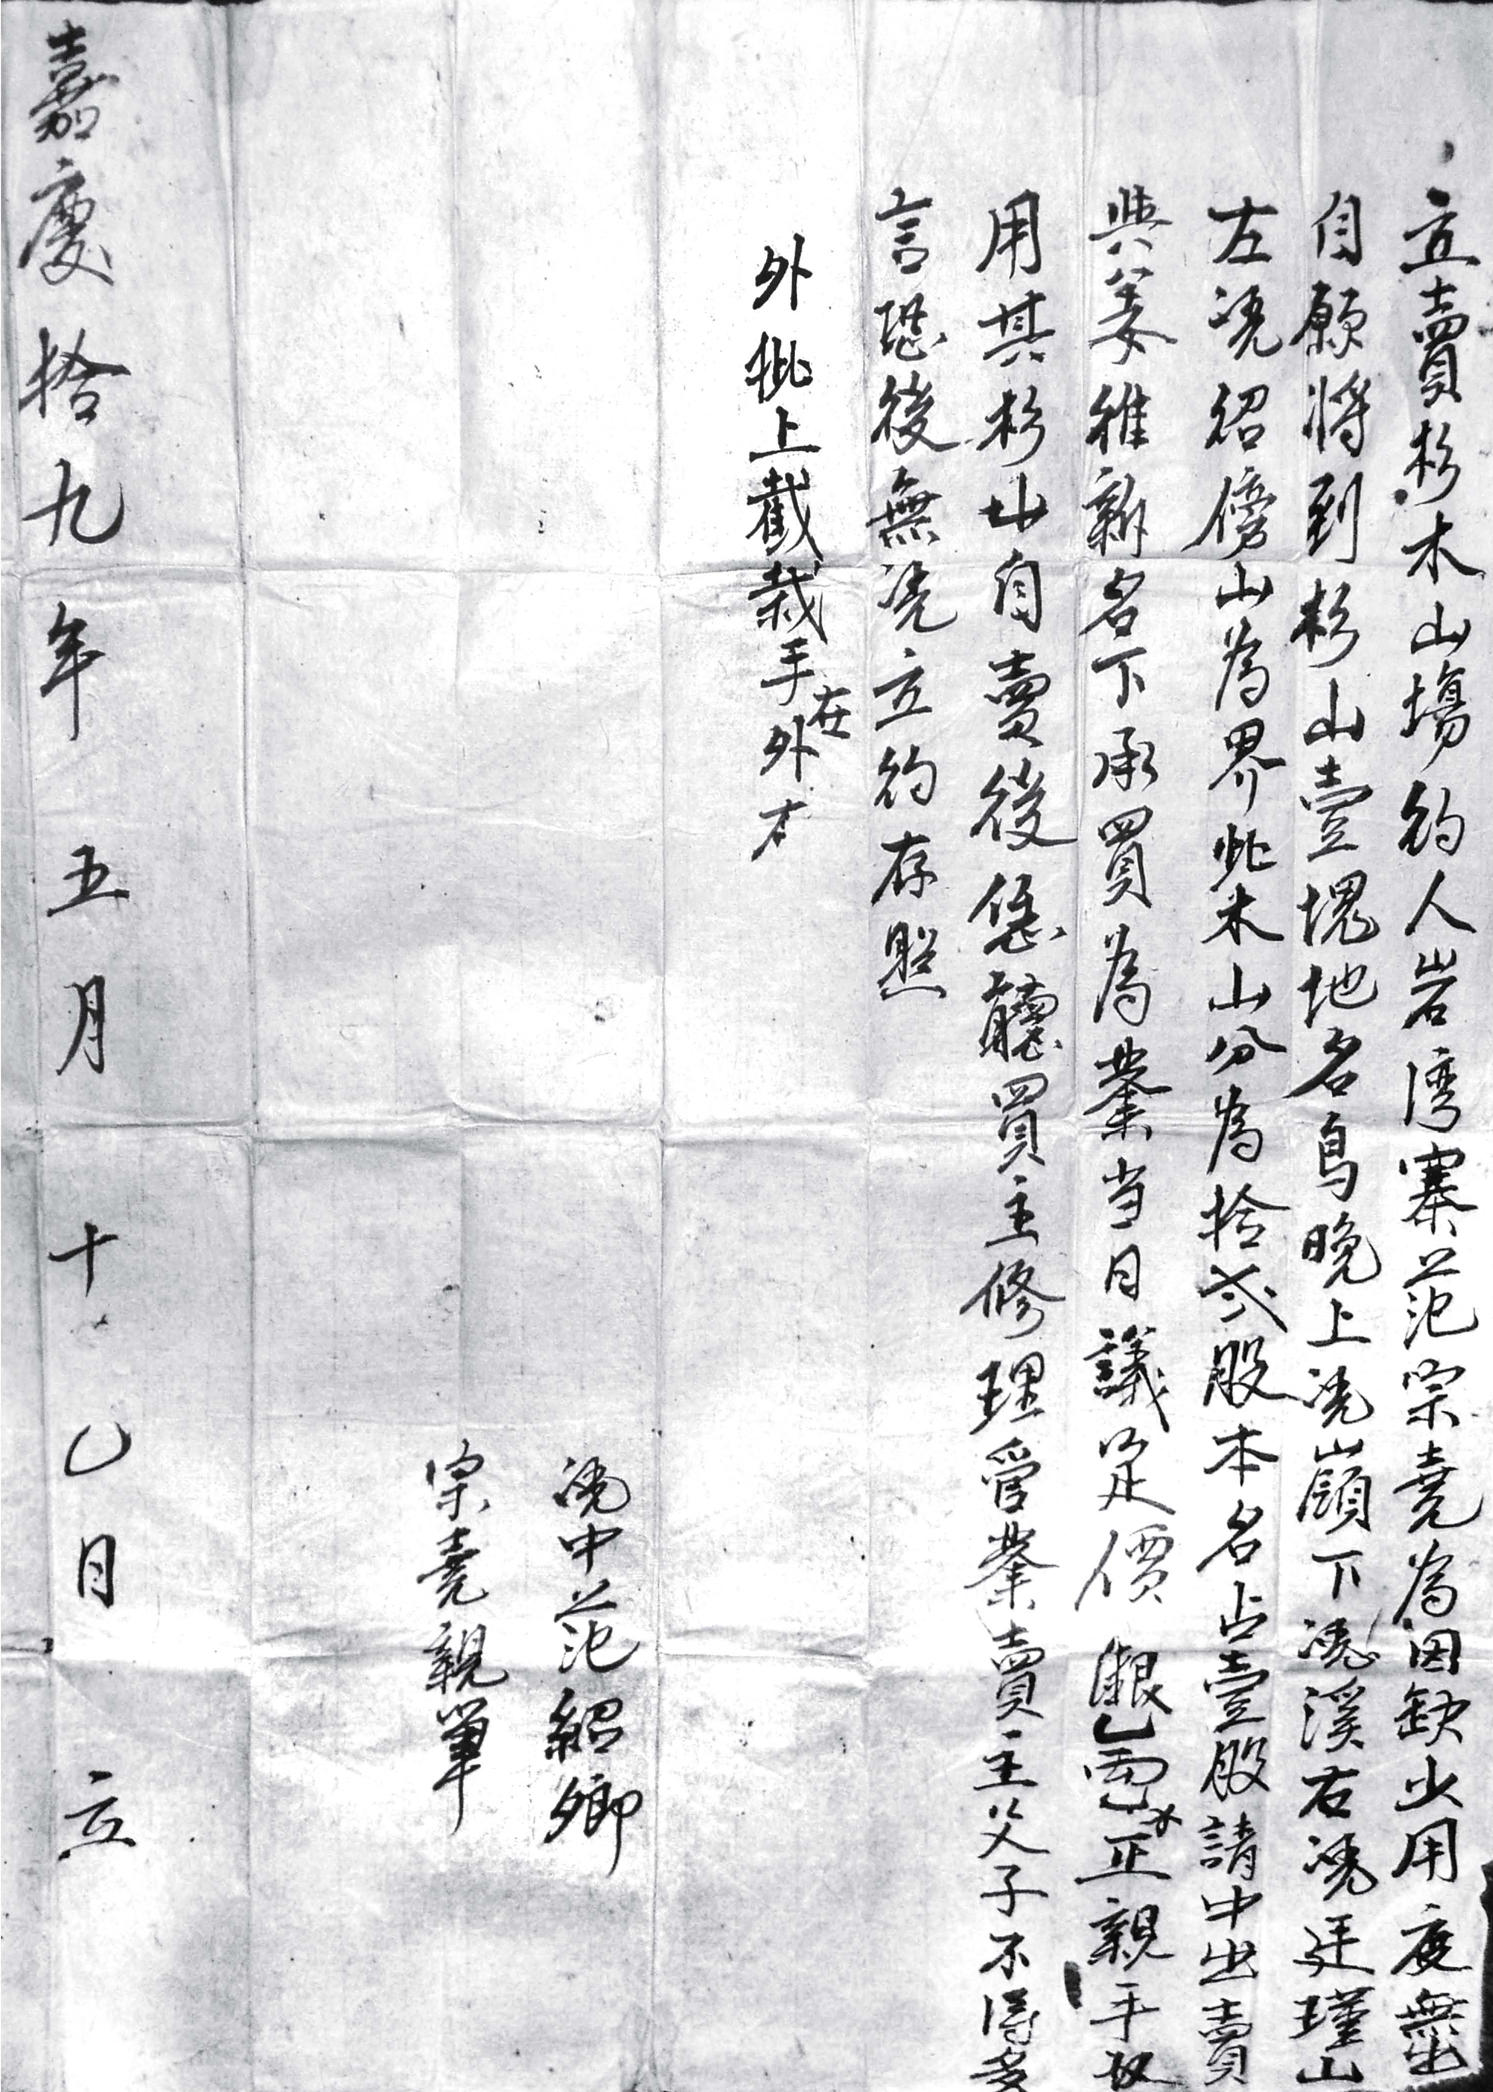 立賣杉木山塲約人岩湾寨范宗堯為因缺少用度無出
自願将到杉山壹塊地名鳥晚上凴嶺下凴溪右凴廷瑾山
左凴紹傍山為界此木山分為拾弍股本名占壹股請中出賣
與姜維新名下承買為業当日議定價銀 両 正親手收
用其杉山自賣後凭聽買主修理管業賣主父子不得多
言恐後無凴立約存照
外批上截栽手在外
凴中范紹鄉
宗堯親筆
嘉慶拾九年五月十 日立